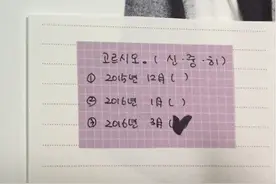 고르시오. ( 상·중·하 )
① 2015년 12月 ( )
② 2016년 1月 ( )
③ 2016년 3月 (